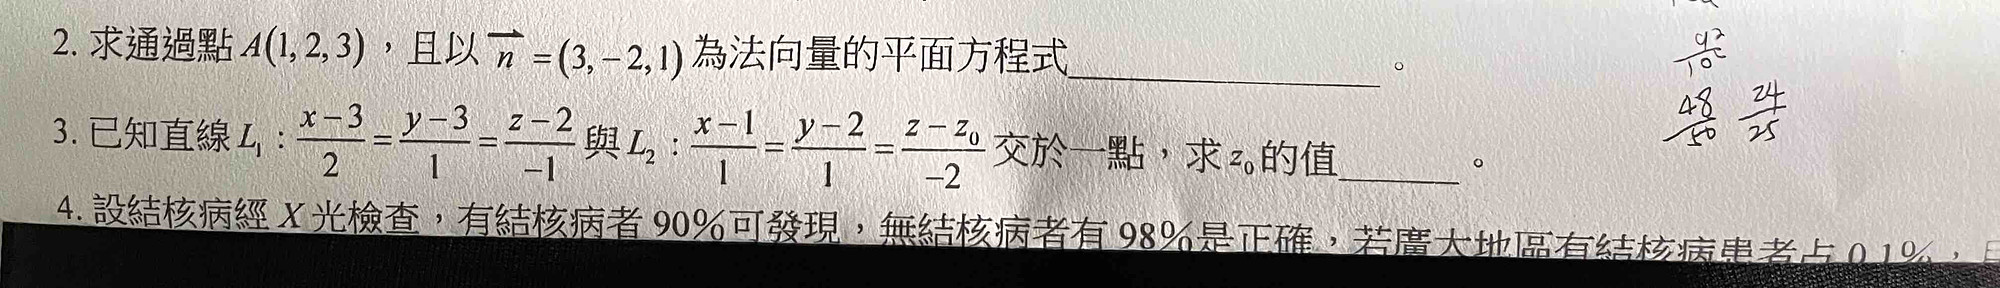 2. 求通過點 A(1, 2, 3)，且以 n⃗ = (3, −2, 1) 為法向量的平面方程式________。
3. 已知直線 L₁ : (x−3)/2 = (y−3)/1 = (z−2)/−1 與 L₂ : (x−1)/1 = (y−2)/1 = (z−z₀)/−2 交於一點，求 z₀ 的值______。
4. 設結核病經 X 光檢查，有結核病者 90%可發現，無結核病者有 98%是正確，若廣大地區有結核病患者占 0.1%，
48/50 24/25